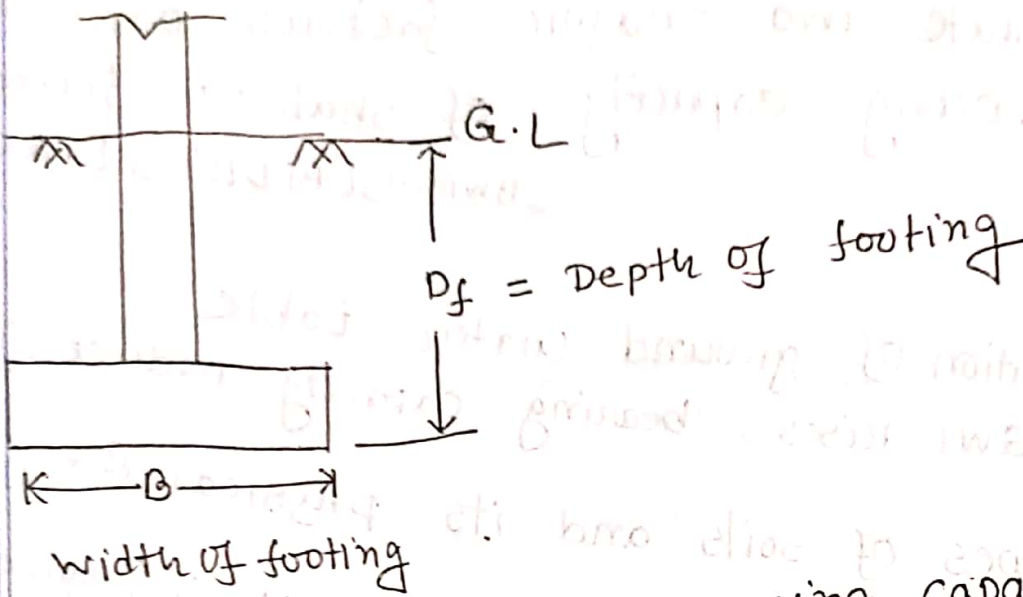 G.L
Df = Depth of footing
B
width of footing